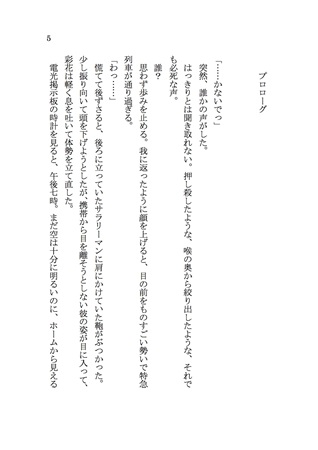 プロローグ
「……かないでっ」
突然、誰かの声がした。
はっきりとは聞き取れない。押し殺したような、喉の奥から絞り出したような、それで
も必死な声。
誰？
思わず歩みを止める。我に返ったように顔を上げると、目の前をものすごい勢いで特急
列車が通り過ぎる。
「わっ……」
慌てて後ずさると、後ろに立っていたサラリーマンに肩にかけていた鞄がぶつかった。
少し振り向いて頭を下げようとしたが、携帯から目を離そうとしない彼の姿が目に入って、
彩花は軽く息を吐いて体勢を立て直した。
電光掲示板の時計を見ると、午後七時。まだ空は十分に明るいのに、ホームから見える
5